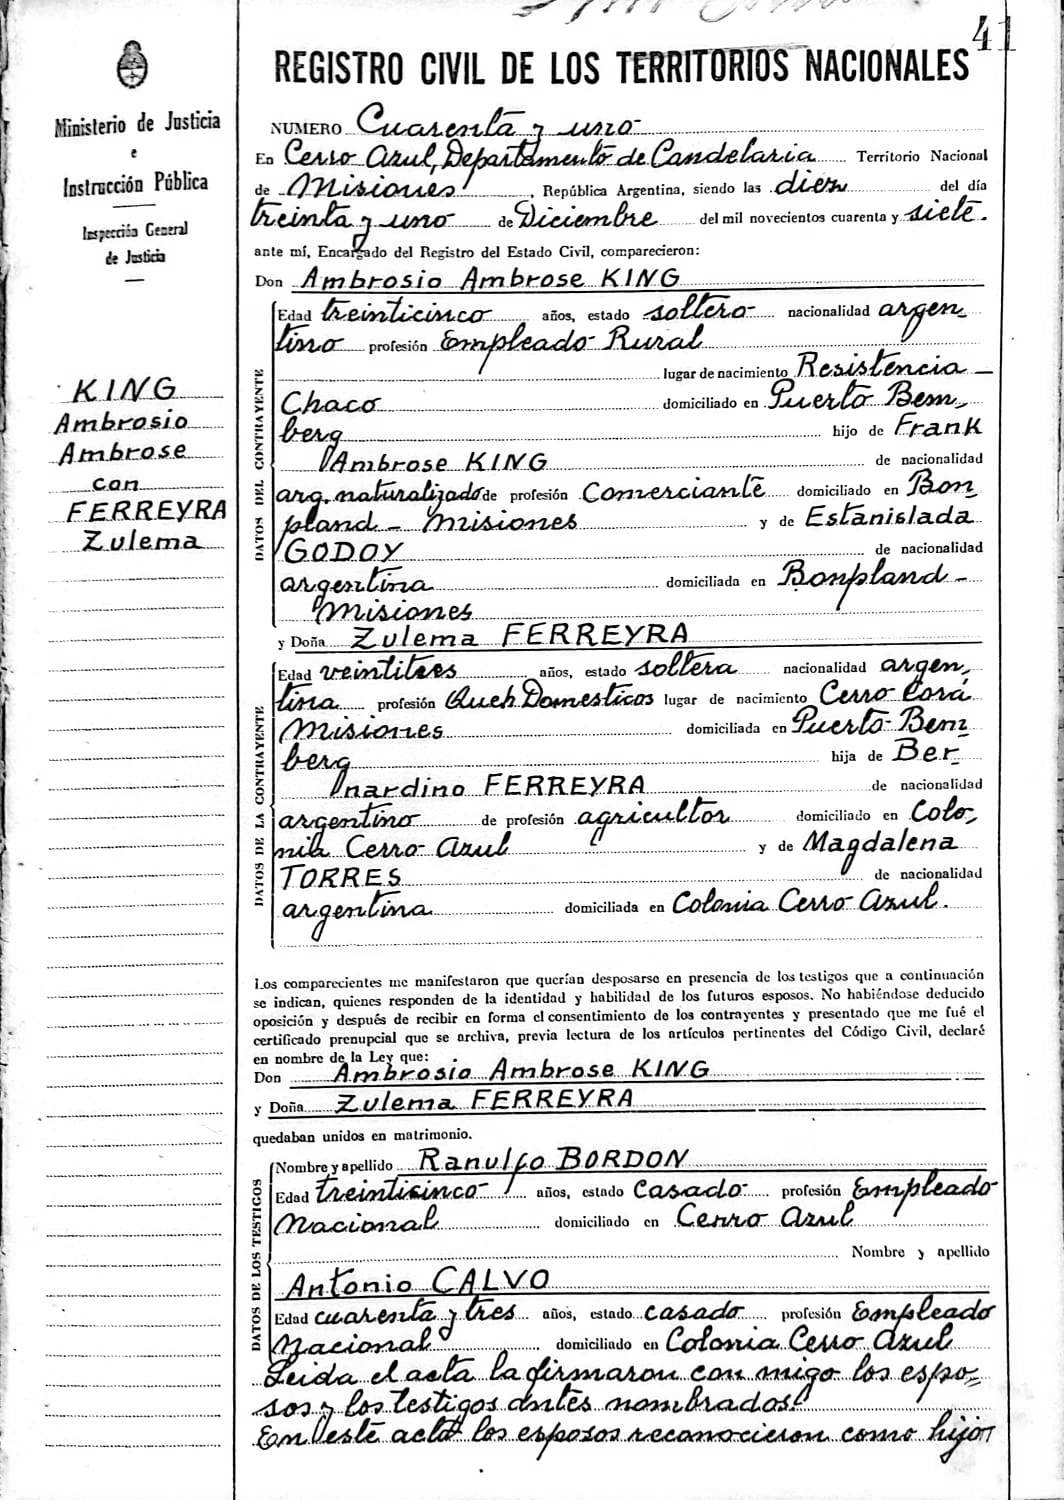 41
REGISTRO CIVIL DE LOS TERRITORIOS NACIONALES
Ministerio de Justicia
e
Instrucción Pública
Inspección General
de Justicia
KING
Ambrosio
Ambrose
con
FERREYRA
Zulema
NUMERO Cuarenta y uno
En Cerro Azul, Departamento de Candelaria Territorio Nacional
de Misiones, República Argentina, siendo las diez del día
treinta y uno de Diciembre del mil novecientos cuarenta y siete.
ante mí, Encargado del Registro del Estado Civil, comparecieron:
Don Ambrosio Ambrose KING
DATOS DEL CONTRAYENTE
Edad treinticinco años, estado soltero nacionalidad argen
tino profesión Empleado Rural
lugar de nacimiento Resistencia -
Chaco domiciliado en Puerto Bem
berg hijo de Frank
Ambrose KING de nacionalidad
arg. naturalizado de profesión Comerciante domiciliado en Bon
pland - Misiones y de Estanislada
GODOY de nacionalidad
argentina domiciliada en Bonpland -
Misiones
y Doña Zulema FERREYRA
DATOS DE LA CONTRAYENTE
Edad veintitres años, estado soltera nacionalidad argen
tina profesión Queh Domesticos lugar de nacimiento Cerro Corá
Misiones domiciliada en Puerto Bem
berg hija de Ber
nardino FERREYRA de nacionalidad
argentino de profesión agricultor domiciliado en Colo
nia Cerro Azul y de Magdalena
TORRES de nacionalidad
argentina domiciliada en Colonia Cerro Azul.
Los comparecientes me manifestaron que querían desposarse en presencia de los testigos que a continuación
se indican, quienes responden de la identidad y habilidad de los futuros esposos. No habiéndose deducido
oposición y después de recibir en forma el consentimiento de los contrayentes y presentado que me fué el
certificado prenupcial que se archiva, previa lectura de los artículos pertinentes del Código Civil, declaré
en nombre de la Ley que:
Don Ambrosio Ambrose KING
y Doña Zulema FERREYRA
quedaban unidos en matrimonio.
DATOS DE LOS TESTIGOS
Nombre y apellido Ranulfo BORDON
Edad treinticinco años, estado casado profesión Empleado
Nacional domiciliado en Cerro Azul
Nombre y apellido
Antonio CALVO
Edad cuarenta y tres años, estado casado profesión Empleado
Nacional domiciliado en Colonia Cerro Azul
Leida el acta la firmaron con migo los espo-
sos y los testigos antes nombrados.
En este acta los esposos reconocieron como hijo